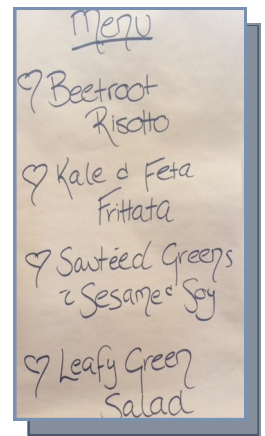 Menu
Beetroot
Risotto
Kale & Feta
Frittata
Sautéed Greens
& Sesame & Soy
Leafy Green
Salad